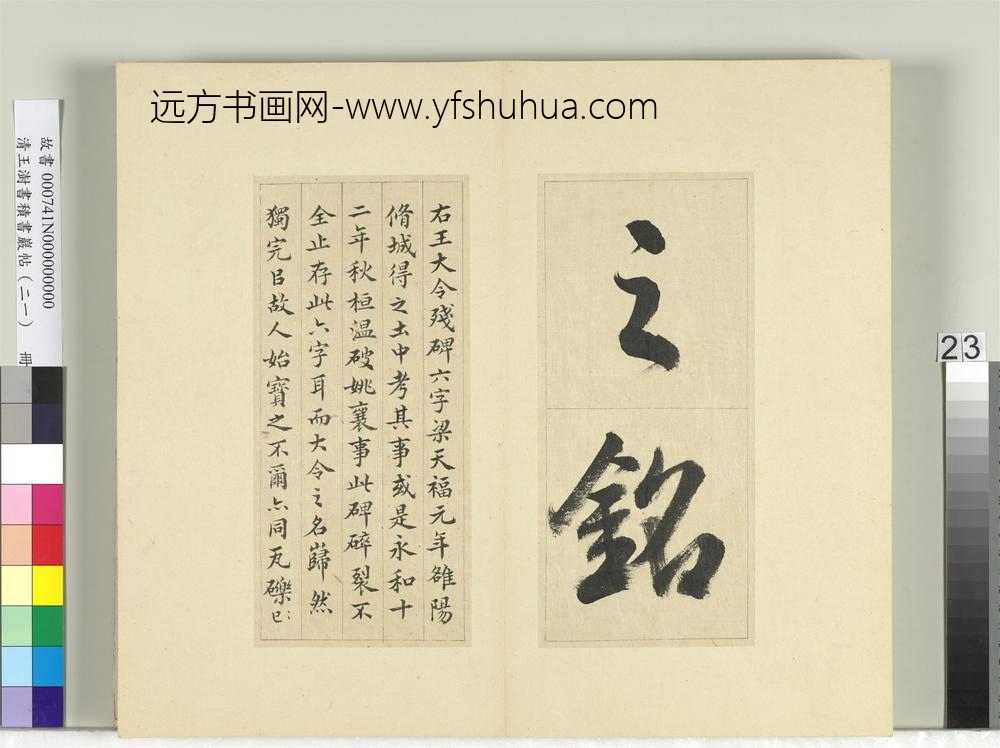 远方书画网-www.yfshuhua.com
之
銘
右王大令殘碑六字梁天福元年雒陽
脩城得之土中考其事或是永和十
二年秋桓温破姚襄事此碑碎裂不
全止存此六字耳而大令之名巋然
獨完㠯故人始寶之不爾亦同瓦礫
已〻
故書 000741N000000000
清王澍書積書巖帖(二一) 冊
23